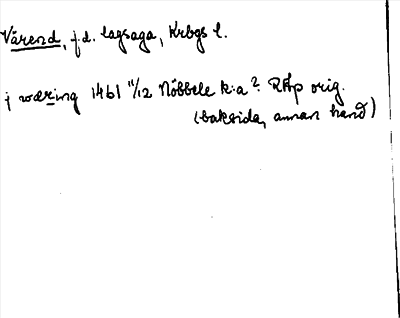 Värend, f.d. lagsaga, Krbgs l.
j wæring 1461 11/12 Nöbbele k:a? RAp orig.
(baksida, annan hand)